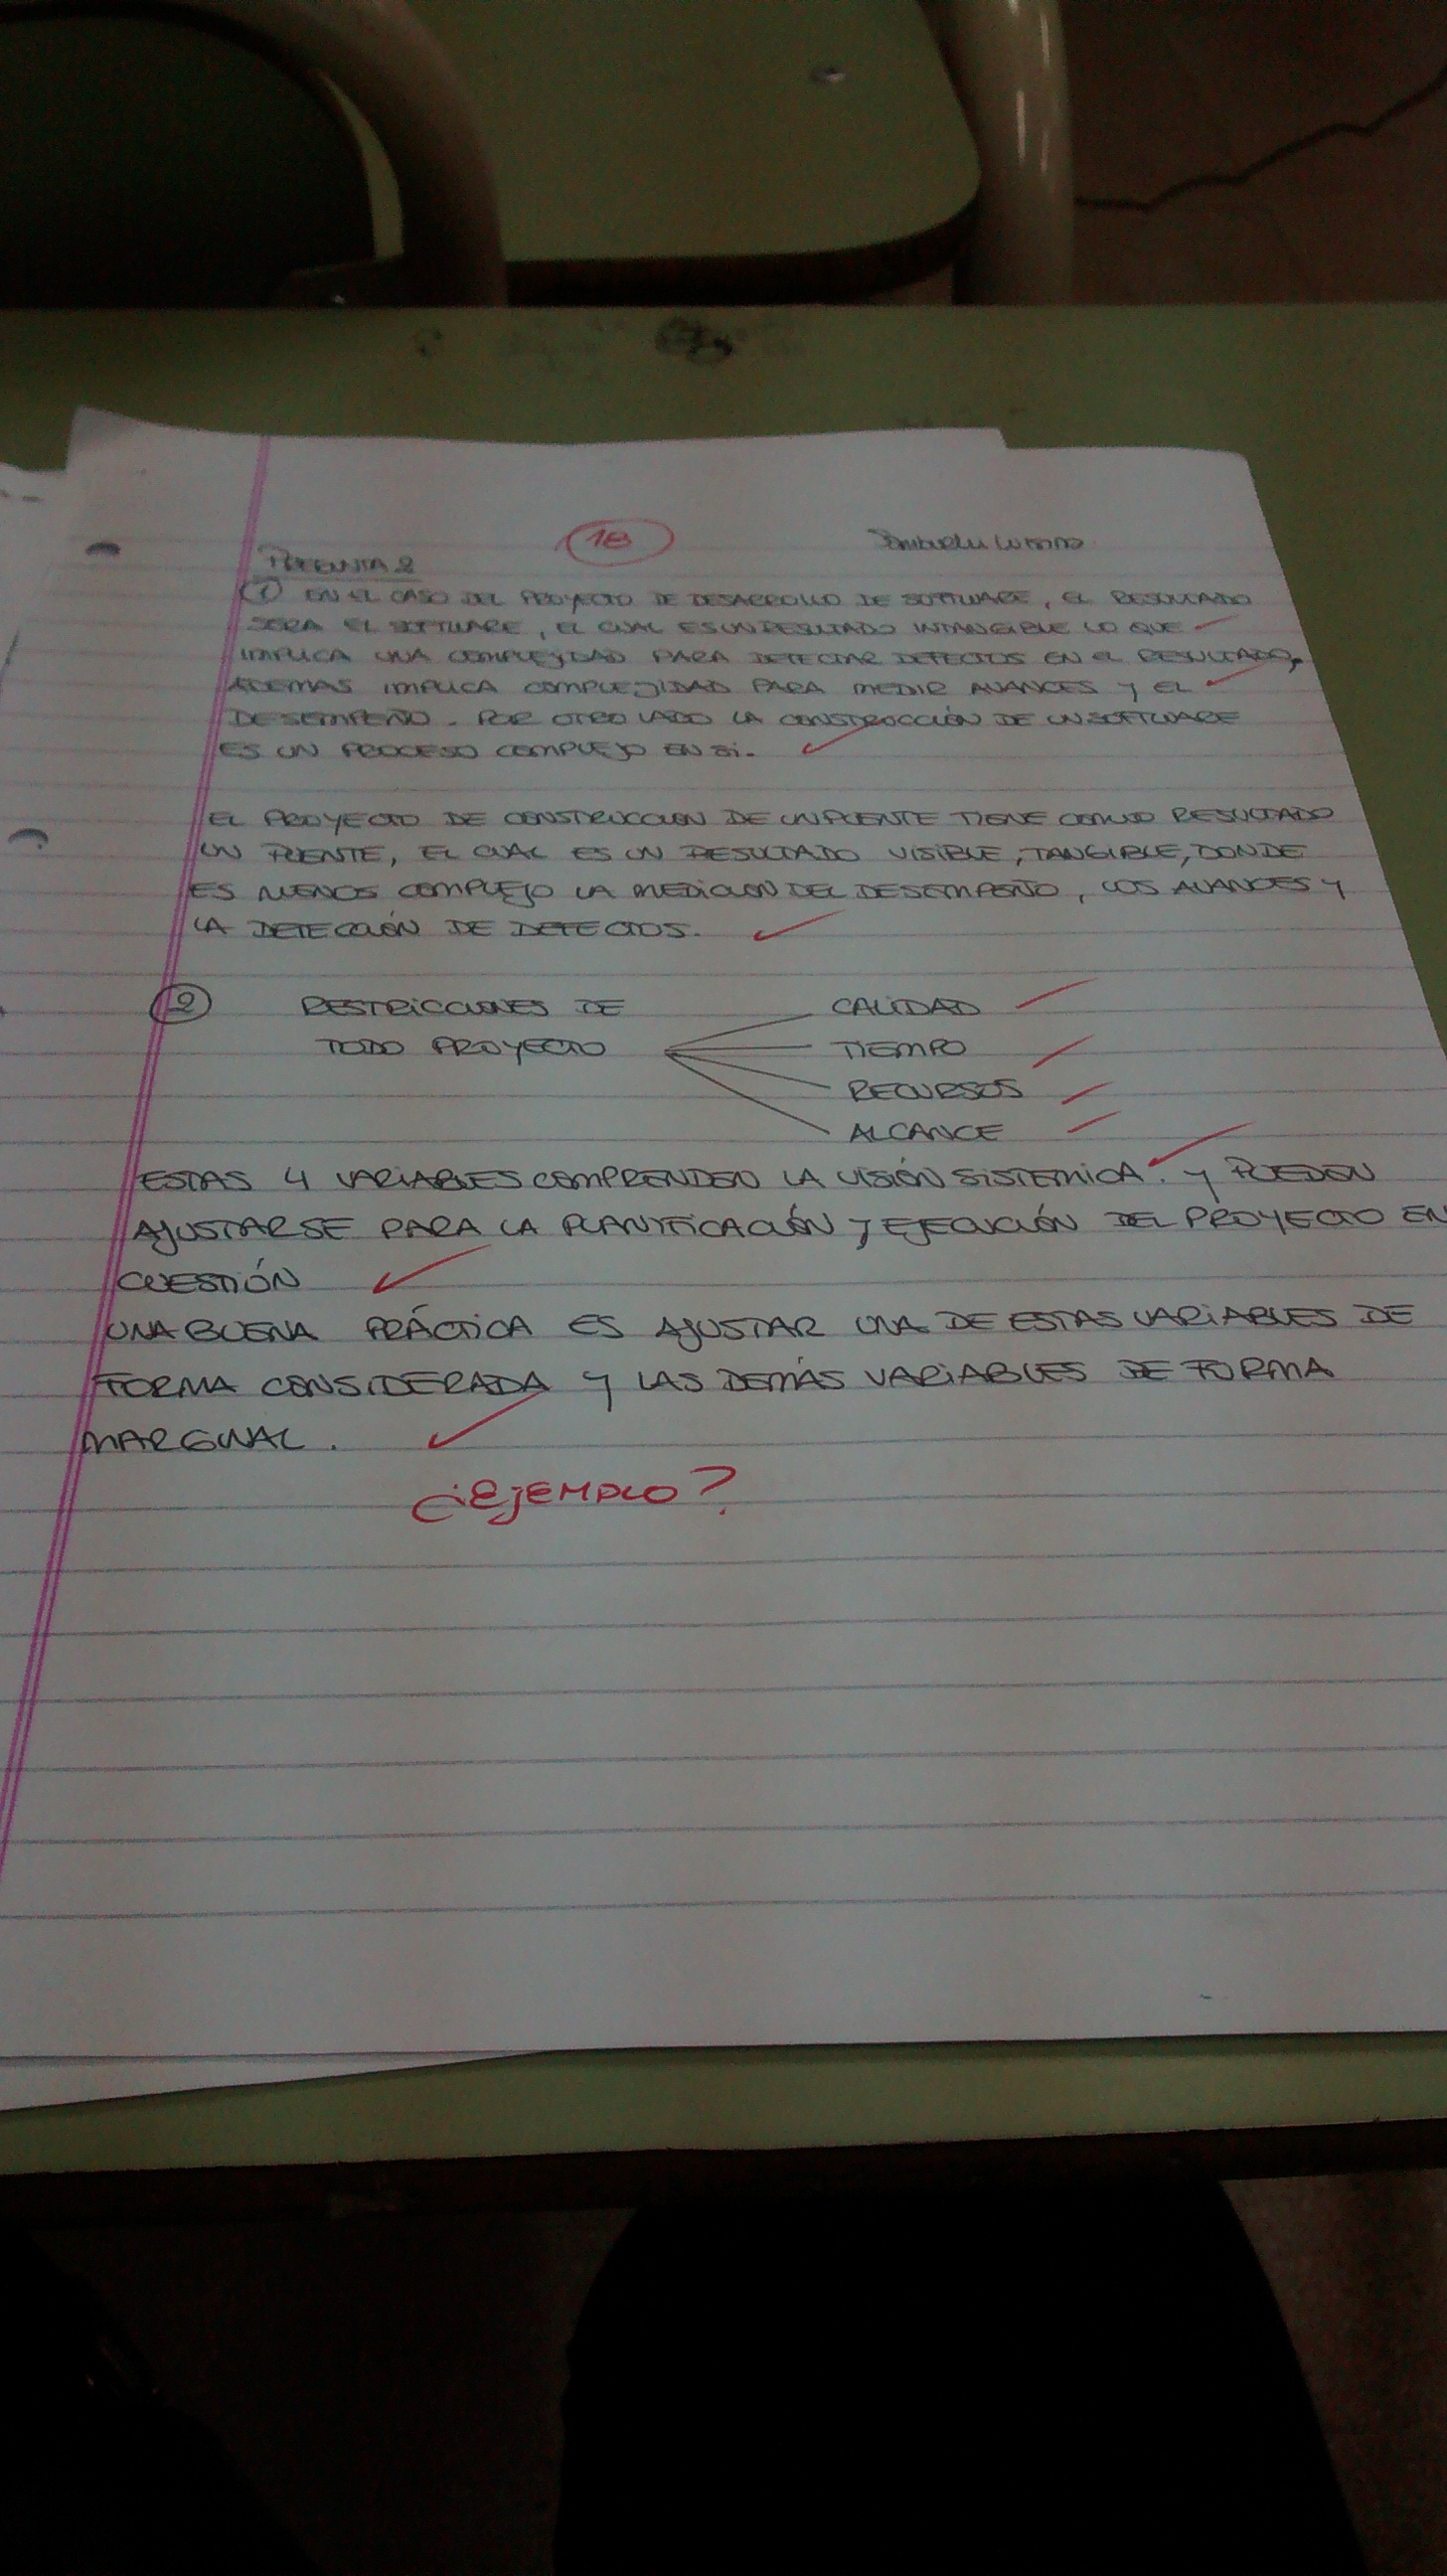 18
PREGUNTA 2
① EN EL CASO DEL PROYECTO DE DESARROLLO DE SOFTWARE, EL RESULTADO
SERA EL SOFTWARE, EL CUAL ES UN RESULTADO INTANGIBLE LO QUE
IMPLICA UNA COMPLEJIDAD PARA DETECTAR DEFECTOS EN EL RESULTADO,
ADEMAS IMPLICA COMPLEJIDAD PARA MEDIR AVANCES Y EL
DESEMPEÑO. POR OTRO LADO LA CONSTRUCCIÓN DE UN SOFTWARE
ES UN PROCESO COMPLEJO EN SI.
EL PROYECTO DE CONSTRUCCION DE UN PUENTE TIENE COMO RESULTADO
UN PUENTE, EL CUAL ES UN RESULTADO VISIBLE, TANGIBLE, DONDE
ES MENOS COMPLEJO LA MEDICION DEL DESEMPEÑO, LOS AVANCES Y
LA DETECCIÓN DE DEFECTOS.
② RESTRICCIONES DE
TODO PROYECTO
CALIDAD
TIEMPO
RECURSOS
ALCANCE
ESTAS 4 VARIABLES COMPRENDEN LA VISIÓN SISTEMICA. Y PUEDEN
AJUSTARSE PARA LA PLANIFICACIÓN Y EJECUCIÓN DEL PROYECTO EN
CUESTIÓN
UNA BUENA PRÁCTICA ES AJUSTAR UNA DE ESTAS VARIABLES DE
FORMA CONSIDERADA Y LAS DEMÁS VARIABLES DE FORMA
MARGINAL.
¿EJEMPLO?